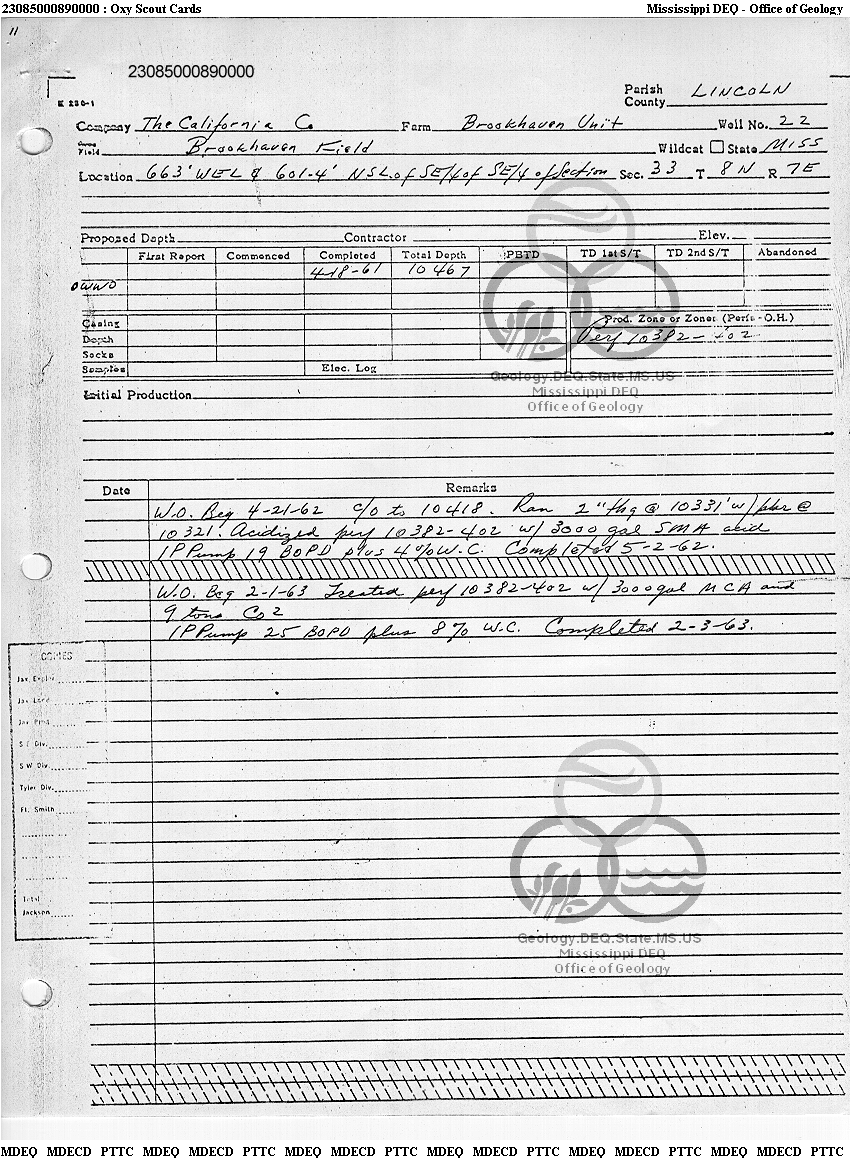 23085000890000 : Oxy Scout Cards Mississippi DEQ - Office of Geology
11
23085000890000
K 230-1
Parish
County LINCOLN
Company The California Co Farm Brookhaven Unit Well No. 22
Field Brookhaven Field Wildcat State MISS
Location 663' WEL & 601.4' NSL of SE/4 of SE/4 of Section Sec. 33 T 8N R 7E
Proposed Depth Contractor Elev.
First Report Commenced Completed Total Depth PBTD TD 1st S/T TD 2nd S/T Abandoned
4-18-61 10467
OWWO
Casing Prod. Zone or Zones (Perfs - O.H.)
Depth Perf 10382-402
Socks
Samples Elec. Log
Geology.DEQ.State.MS.US
Mississippi DEQ
Office of Geology
Initial Production
Date Remarks
W.O. Beg 4-21-62 c/o to 10418. Ran 2" tbg @ 10331' w/ pkr @
10321. Acidized perf 10382-402 w/ 3000 gal SMA acid
IP Pump 19 BOPD plus 4% W.C. Completed 5-2-62.
W.O. Beg 2-1-63 Treated perf 10382-402 w/ 3000 gal MCA and
9 tons Co2
IP Pump 25 BOPD plus 8% W.C. Completed 2-3-63.
COPIES
Jax. Explor.
Jax Land
S W Div.
Tyler Div.
Ft. Smith
Total
Jackson
Geology.DEQ.State.MS.US
Mississippi DEQ
Office of Geology
MDEQ MDECD PTTC MDEQ MDECD PTTC MDEQ MDECD PTTC MDEQ MDECD PTTC MDEQ MDECD PTTC MDEQ MDECD PTTC